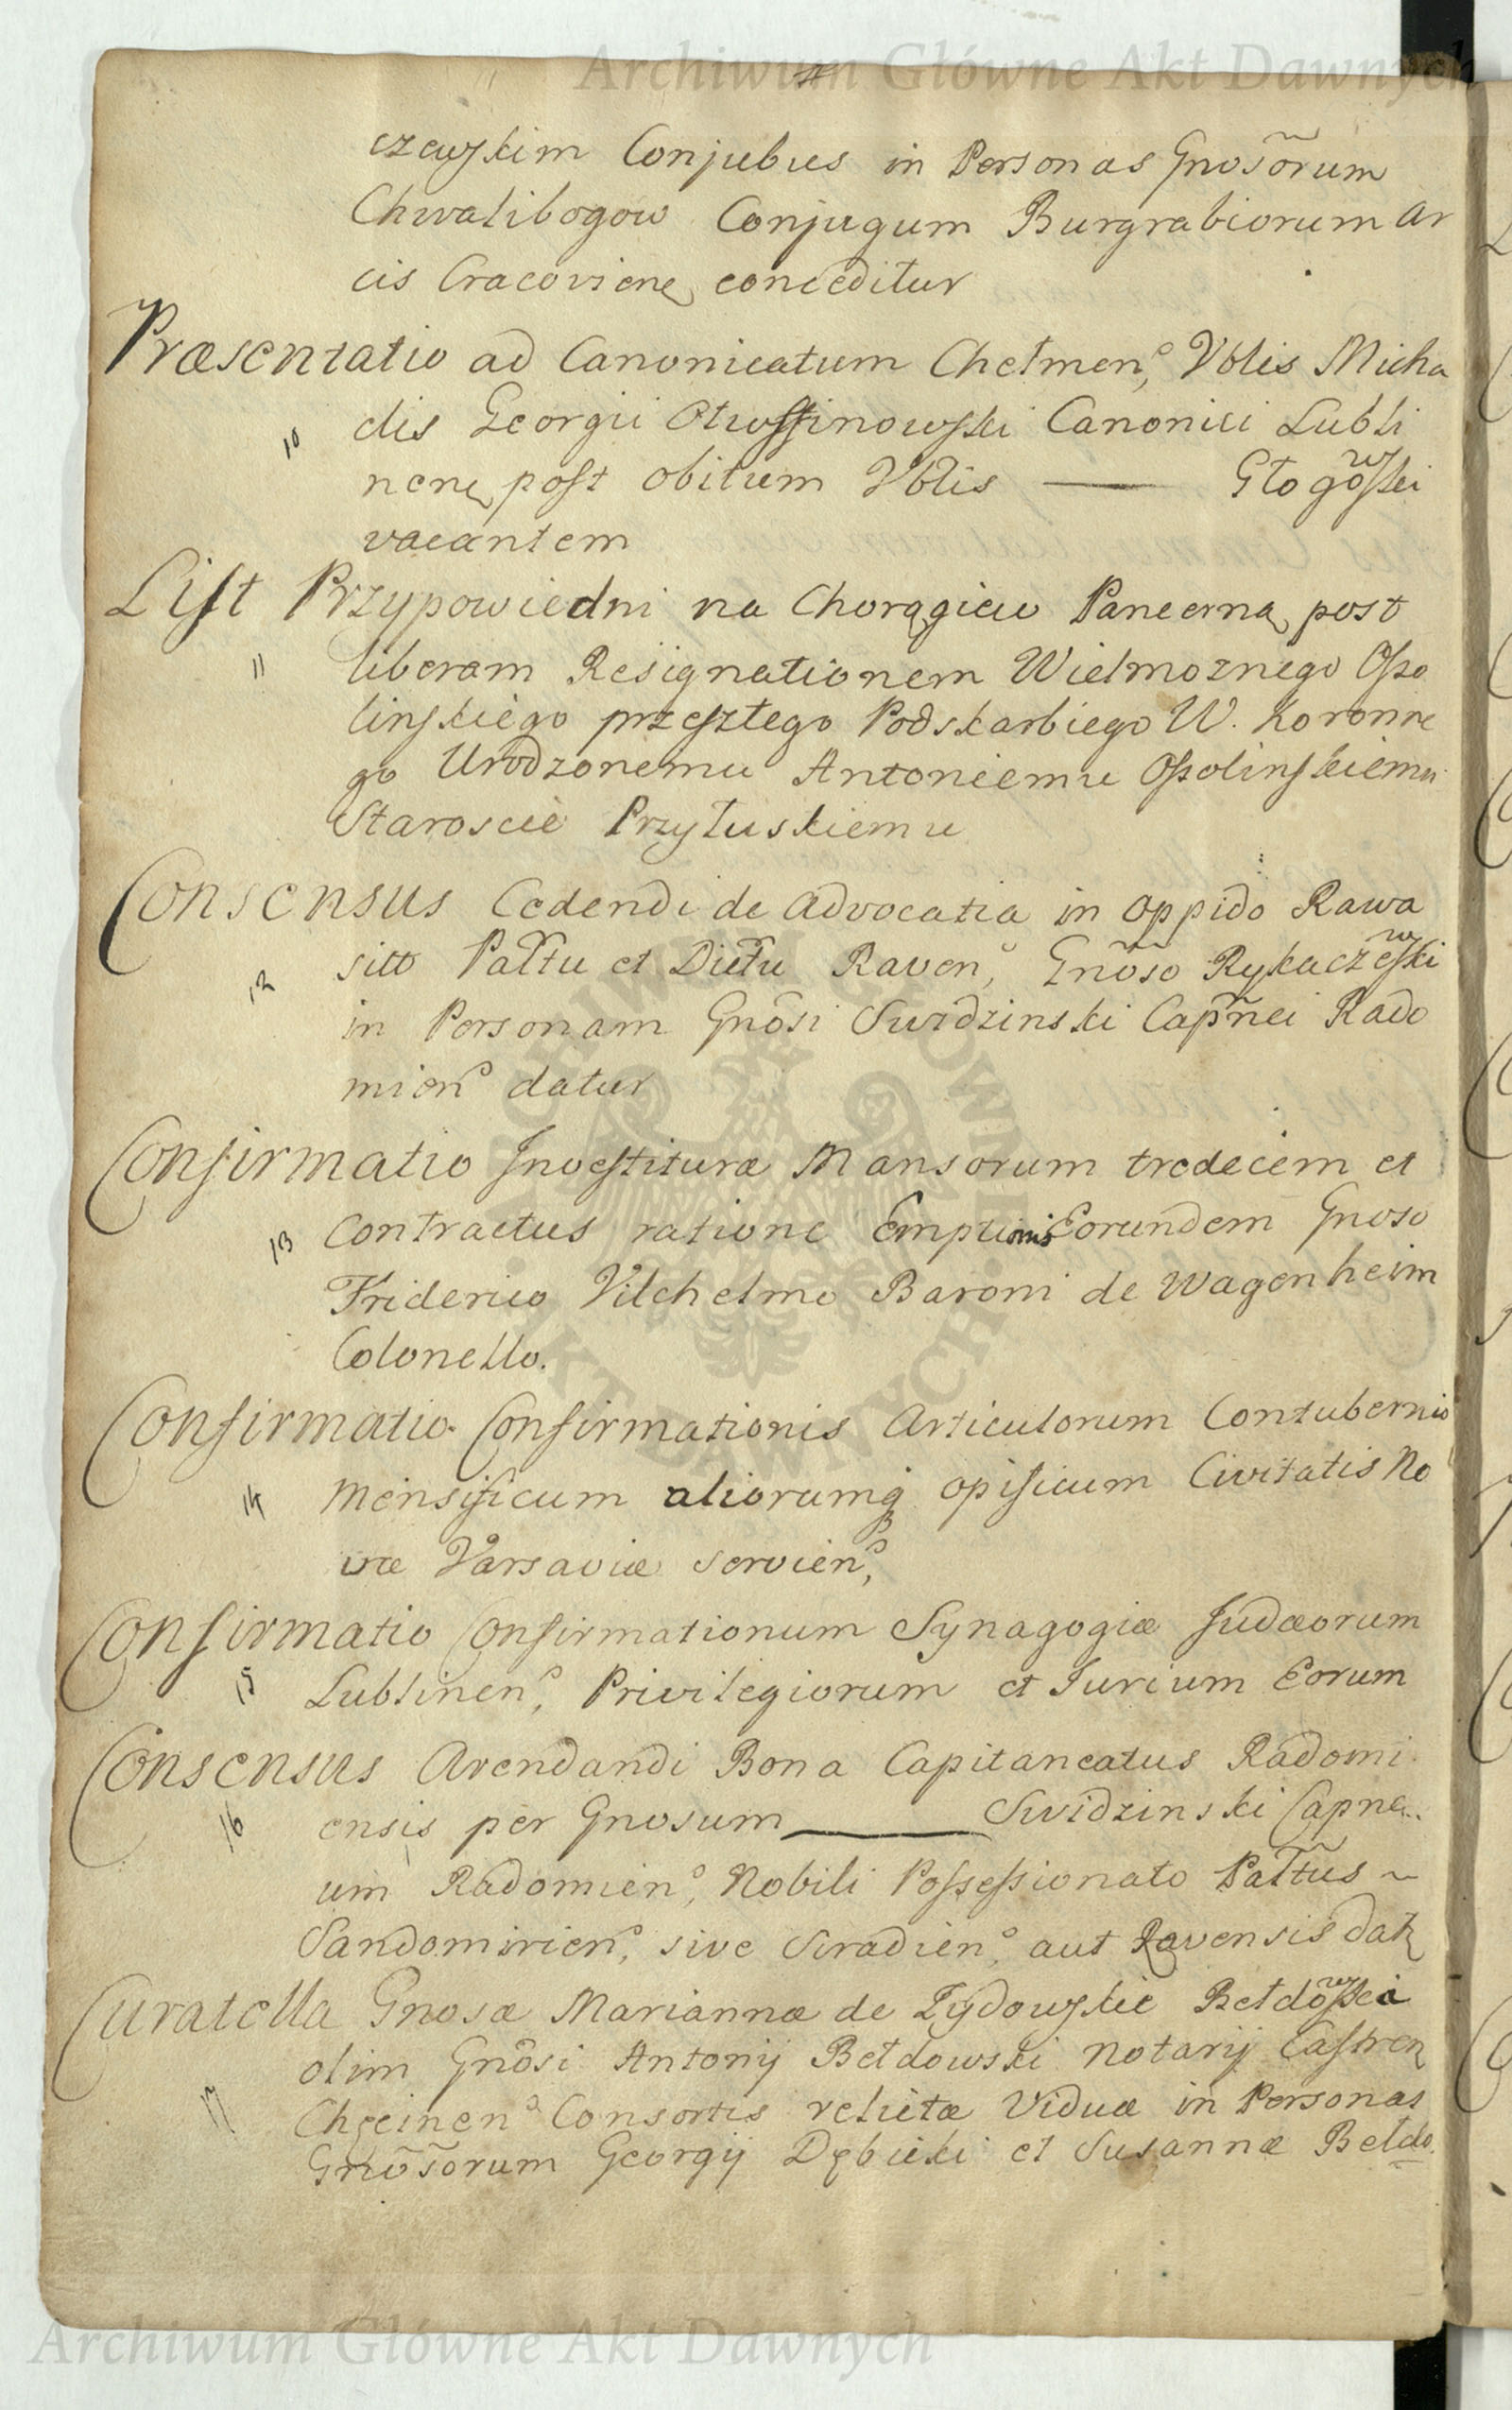 Archiwum Główne Akt Dawnych
czewskim Conjubus in Personas Gnosorum
Chwalibogow Conjugum Burgrabiorum Ar
cis Cracovien, conceditur
Præsentatio ad Canonicatum Chełmen, Vblis Micha
10
elis Georgii Otwssinowski Canonici Lubli
nen, post obitum Vblis — Głogowski
vacantem
List Przypowiedni na Chorągiew Pancerną post
11
liberam Resignationem Wielmoznego Osso
linskiego przeszłego Podskarbiego W. Koronne
go Urodzonemu Antoniemu Ossolinskiemu
Staroscie Przyłuskiemu
Consensus Cedendi de Advocatia in Oppido Rawa
12
sitto Pałtu et Distu Raven, Gnoso Rykaczewski
in Personam Gnosi Swidzinski Capnei Rado
mien datur
Confirmatio Investituræ Mansorum tredecim et
13
Contractus ratione Emptionis Eorundem Gnoso
Friderico Vilchelmo Baroni de Wagenheim
Colonello.
Confirmatio Confirmationis Articulorum Contubernio
14
Mensificum aliorumq opificum Civitatis No
væ Varsaviæ servien,
Confirmatio Confirmationum Synagogiæ Judæorum
15
Lublinen, Privilegiorum et Jurium Eorum
Consensus Arendandi Bona Capitaneatus Radomi
16
ensis per Gnosum — Swidzinski Capne
um Radomien, Nobili Possessionato Pałtus ~
Sandomirien, sive Siradien, aut Ravensis datr
Curatella Gnosæ Mariannæ de Zydowskie Bełdowska
17
olim Gnosi Antonij Bełdowski Notarij Castren
Chęcinen Consortis relictæ Viduæ in Personas
Gnosorum Georgij Dębicki et Susannæ Bełdo
Archiwum Główne Akt Dawnych